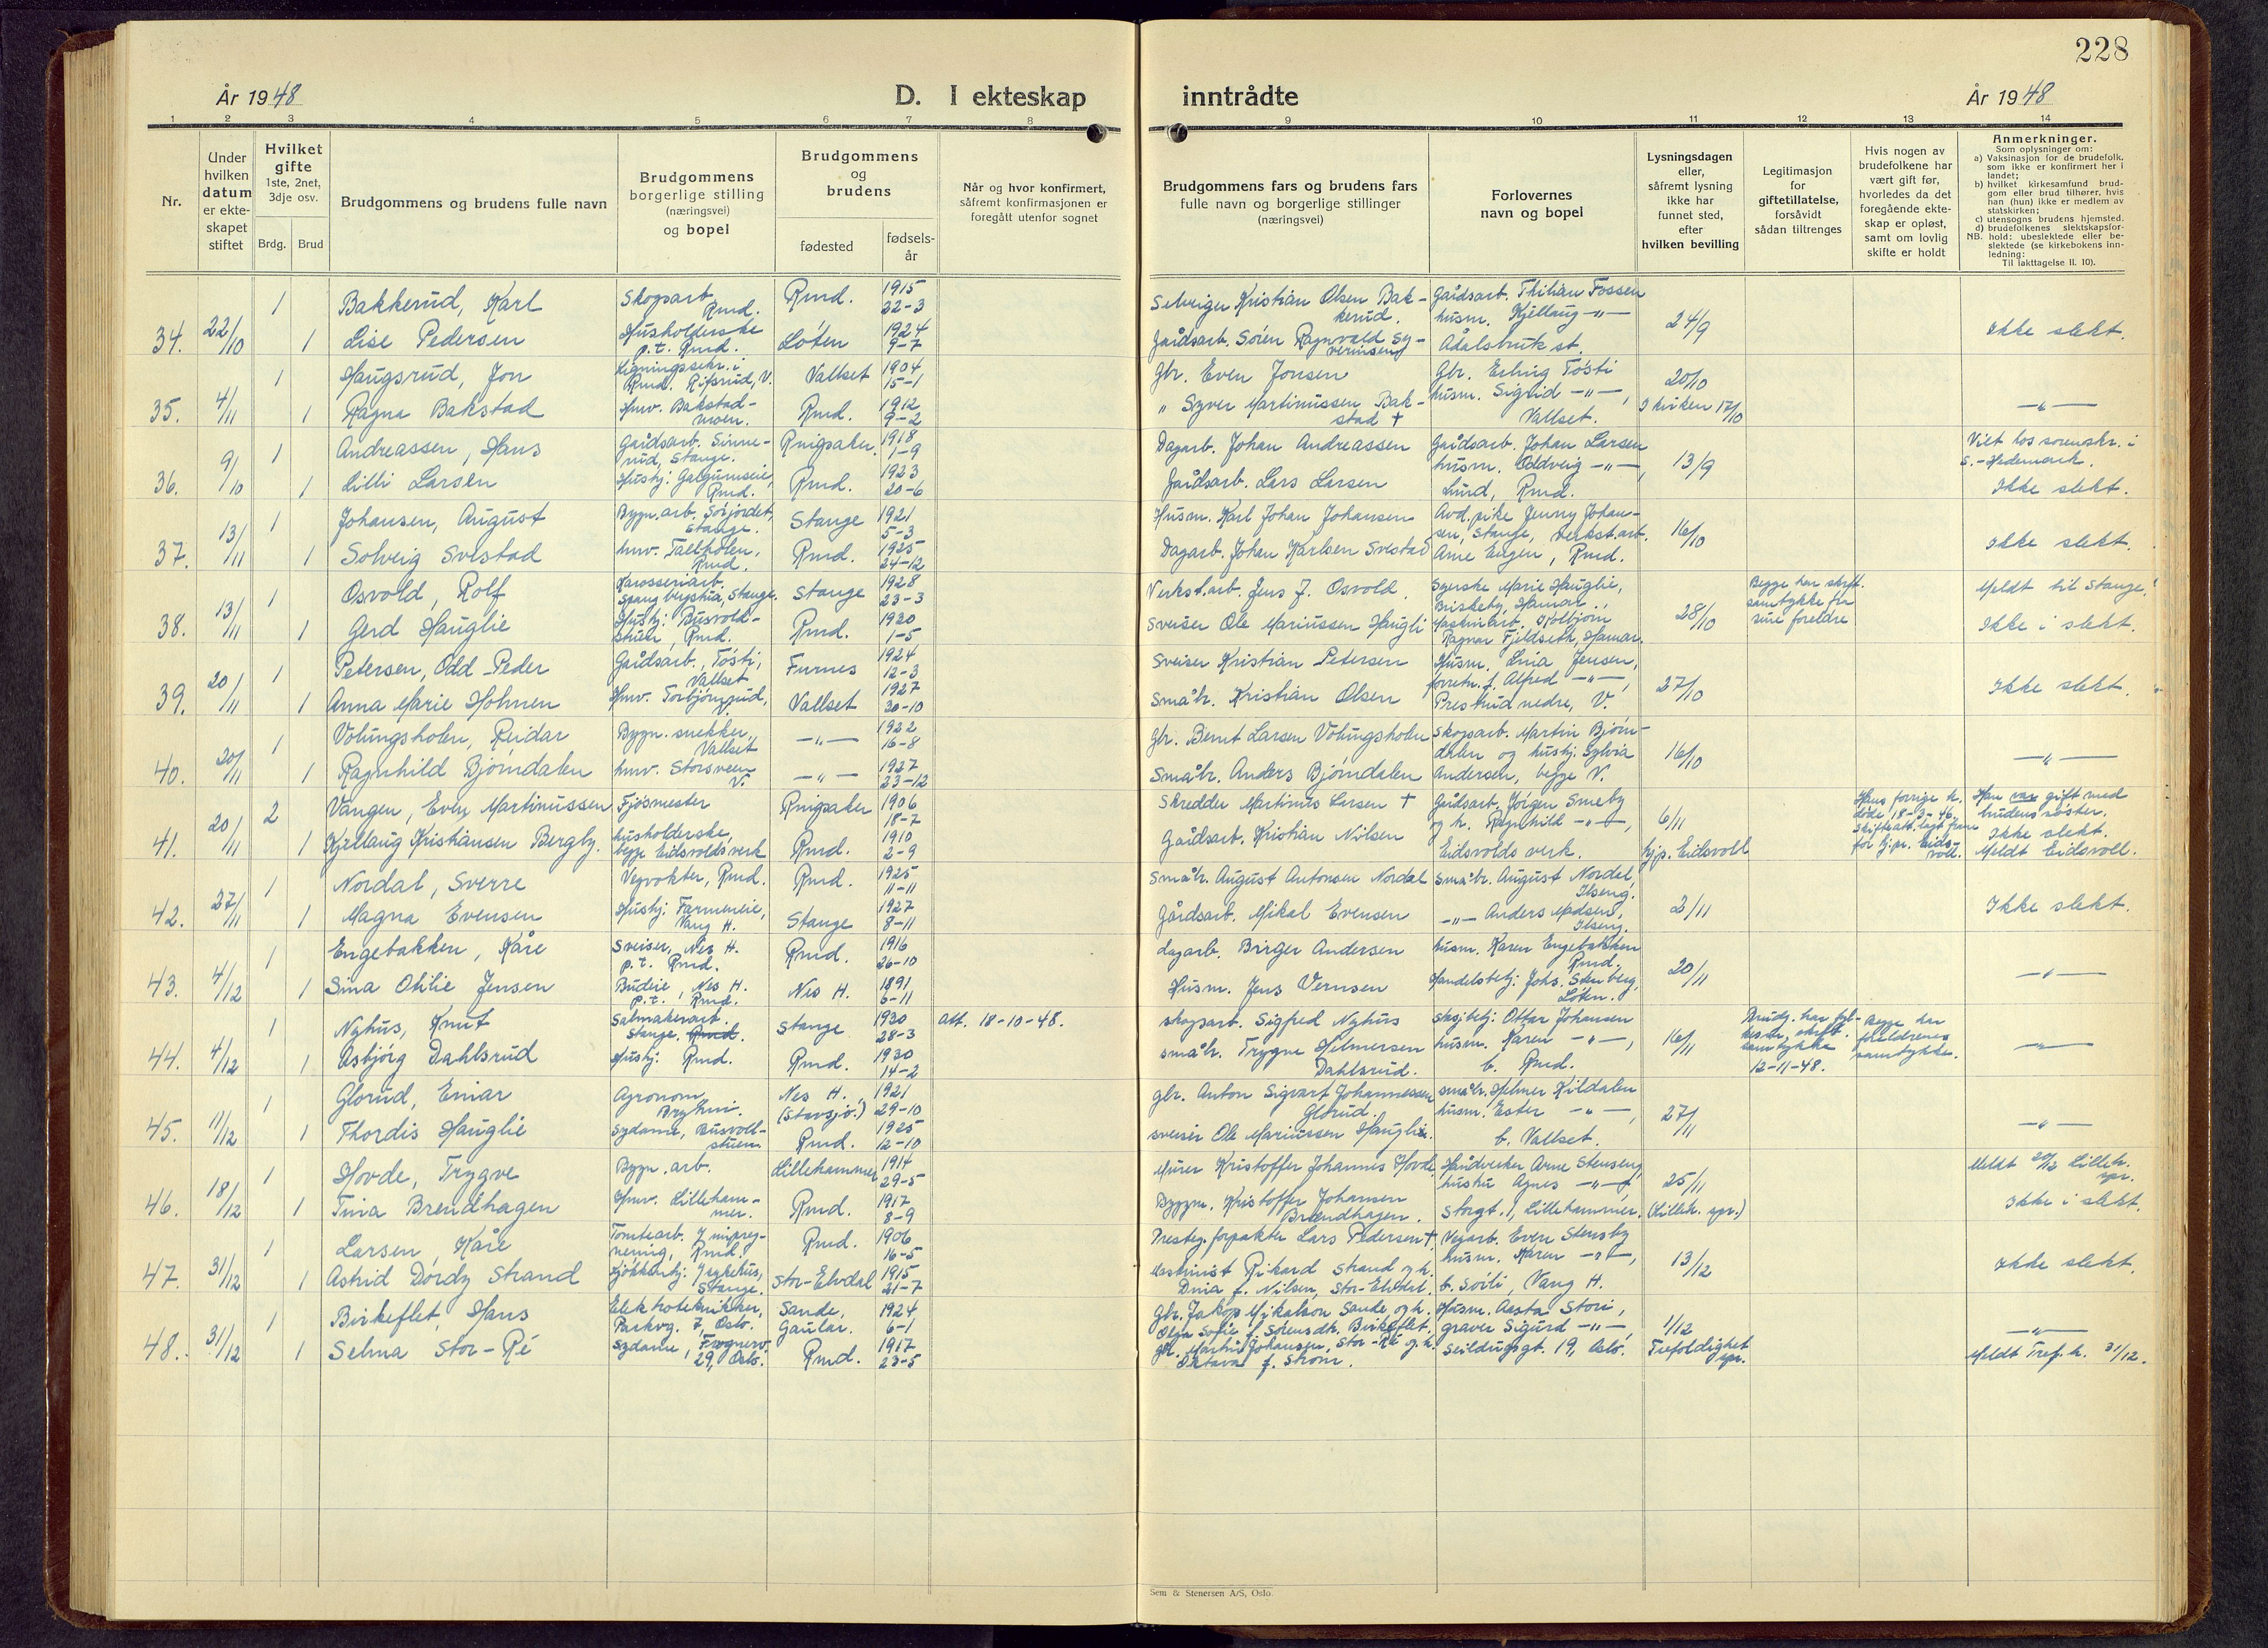 228
År 1948
D. I ekteskap
inntrådte
År 1948
1 2 3 4 5 6 7 8 9 10 11 12 13 14
Nr.
Under
hvilken
datum
er ekte-
skapet
stiftet
Hvilket
gifte
1ste, 2net,
3dje osv.
Brdg. Brud
Brudgommens og brudens fulle navn
Brudgommens
borgerlige stilling
(næringsvei)
og bopel
Brudgommens
og
brudens
fødested
fødsels-
år
Når og hvor konfirmert,
såfremt konfirmasjonen er
foregått utenfor sognet
Brudgommens fars og brudens fars
fulle navn og borgerlige stillinger
(næringsvei)
Forlovernes
navn og bopel
Lysningsdagen
eller,
såfremt lysning
ikke har
funnet sted,
efter
hvilken bevilling
Legitimasjon
for
giftetillatelse,
forsåvidt
sådan tiltrenges
Hvis nogen av
brudefolkene har
vært gift før,
hvorledes da det
foregående ekte-
skap er opløst,
samt om lovlig
skifte er holdt
Anmerkninger.
Som oplysninger om:
a) Vaksinasjon for de brudefolk,
som ikke er konfirmert her i
landet;
b) hvilket kirkesamfund brud-
gom eller brud tilhører, hvis
han (hun) ikke er medlem av
statskirken;
c) utensogns brudens hjemsted.
d) brudefolkenes slektskapsfor-
NB. hold: ubeslektede eller be-
slektede (se kirkebokens inn-
ledning:
Til iakttagelse II. 10).
34. 22/10 1 Bakkerud, Karl Skogsarb. Rmd. Rmd. 1915 22-3
1 Lise Pedersen Husholderske p.t. Rmd. Løten 1924 9-7
Selveiger Kristian Olsen Bakkerud.
Gårdsarb. Søren Ragnvald Syverinsen
Gårdsarb. Thilian Fossen
husm. Kjellaug -"-
Ådalsbruk st.
24/9
Ikke slekt.
35. 4/11 1 Haugsrud, Jon Ligningssekr. i Rmd. Rifsrud, V. Vallset 1904 15-1
1 Ragna Bakstad Hmv. Bakstad-moen. Rmd. 1912 9-2
Gbr. Even Jonsen
" Syver Martinussen Bakstad †
Gbr. Erling Tøsti
husm. Sigrid -"-,
Vallset.
20/10
I kirken 17/10
-"-
36. 9/10 1 Andreassen, Hans Gårdsarb. Sinnerud, Stange. Rmd. 1918 1-9
1 Lilli Larsen Hushj. Rmd. Rmd. 1923 20-6
Dagarb. Johan Andreassen
Gårdsarb. Lars Larsen
Gårdsarb. Johan Larsen
husm. Oddveig -"-,
Lund, Rmd.
13/9
Viet hos sorenskr. i
S.-Hedemark.
Ikke slekt.
37. 13/11 1 Johansen, August Bygn.arb. Sørjordet, Stange. Stange 1921 5-3
1 Solveig Svestad hmv. Rmd. Rmd. 1925 24-12
Husm. Karl Johan Johansen
Dagarb. Johan Karlsen Svestad
Avd. pike Jenny Johansen, Stange, verkst.arb.
Arne Engen, Rmd.
16/10
Ikke slekt.
38. 13/11 1 Osvold, Rolf Karosseriarb. Stange. Stange 1928 23-3
1 Gerd Hauglie Hushj. Busvoldstuen, Rmd. Rmd. 1930 1-5
Verkst.arb. Jens J. Osvold.
Sveiser Ole Mariussen Haugli
Syerske Marie Hauglie,
Briskeby, Hamar.
Maskinarb. Kolbjørn
Ragnar Fjeldseth, Hamar.
28/10
Begge har skr.ft.
samtykke fra
sine foreldre
Meldt til Stange.
Ikke i slekt.
39. 20/11 1 Petersen, Odd-Peder Gårdsarb., Tøsti, Vallset Furnes 1924 12-3
1 Anna Marie Holmen Hmv. Torbjørnsrud, V. Vallset 1927 30-10
Sveiser Kristian Petersen
Småbr. Kristian Olsen
Husm. Lina Jensen,
forretn.f. Alfred -"-,
Prestrud nedre, V.
27/10
Ikke slekt.
40. 20/11 1 Volungsholen, Reidar Bygn. snekker, Vallset -"- 1922 16-8
1 Ragnhild Bjørndalen hmv. Storsveen V. -"- 1927 23-12
Gbr. Bernt Larsen Volungsholen
Småbr. Anders Bjørndalen
Skogsarb. Martin Bjørndalen og hushj. Sylvia
Andersen, begge V.
16/10
-"-
41. 20/11 2 Vangen, Even Martinussen Fjøsmester Ringsaker 1906 18-7
1 Kjellaug Kristiansen Bergby. husholderske, begge Eidsvolds verk Rmd. 1910 2-9
Skredder Martinus Larsen †
Gårdsarb. Kristian Nilsen
Gårdsarb. Jørgen Smeby
og h. Ragnhild -"-,
Eidsvolds verk.
6/11
hjp. Eidsvoll
Hans forrige h.
døde 18-3-46.
Skifteatt. lagt fram
for hjpr. Eids-
voll.
Han var gift med
brudens søster.
Ikke slekt.
Meldt Eidsvoll.
42. 27/11 1 Nordal, Sverre Veivokter, Rmd. Rmd. 1925 11-11
1 Magna Evensen Hushj. Farmeneie, Vang H. Stange 1927 8-11
Småbr. August Antonsen Nordal
Gårdsarb. Mikal Evensen
Småbr. August Nordal,
Ilseng.
-"- Anders Madsen,
Ilseng.
2/11
Ikke slekt.
43. 4/12 1 Engebakken, Kåre Sveiser, Nes H. p.t. Rmd. Rmd. 1916 26-10
1 Sina Otilie Jensen Budeie, Nes H. p.t. Rmd. Nes H. 1891 6-11
dagarb. Birger Andersen
Husm. Jens Vernsen
husm. Karen Engebakken
Rmd.
Handelsbetj. Johs. Stenberg,
Løten.
20/11
-"-
44. 4/12 1 Nyhus, Knut Salmakerarb. Stange. Rmd. Stange 1930 28-3 Att. 18-10-48.
1 Asbjørg Dahlsrud Hushj. Rmd. Rmd. 1930 14-2
Skogsarb. Sigfred Nyhus
småbr. Trygve Helmersen
Dahlsrud.
Skogbetj. Ottar Johansen
husm. Karen -"-,
b. Rmd.
16/11
Brudg. har
samtykke
12-11-48.
Begge har
foreldrenes
samtykke.
-"-
45. 11/12 1 Glorud, Einar Agronom, Nes H. (Stavsjø.) 1921 29-10
1 Thordis Hauglie Sydame, Busvoldstuen Rmd. 1925 12-10
gbr. Anton Sigvart Johannessen
Glorud.
sveiser Ole Mariussen Hauglie.
småbr. Helmer Kildalen
husm. Ester -"-,
b. Vallset.
27/11
-"-
46. 18/12 1 Hovde, Trygve Bygn.arb. Lillehammer 1914 29-5
1 Tina Brendhagen Hmv. Lillehammer. Rmd. 1917 8-9
Murer Kristoffer Johannes Hovde
Byggm. Kristoffer Johansen
Brændhagen.
Håndverker Arne Stenseng
hustru Agnes -"-,
Storgt. 1, Lillehammer.
25/11
(Lilleh. spr.)
Meldt 20/12 Lilleh.
spr.
Ikke i slekt.
47. 31/12 1 Larsen, Kåre Tomtearb. Impregnering, Rmd. Rmd. 1906 16-5
1 Astrid Dordy Strand Kjøkkenhj. Sykehus, Stange. Stor-Elvdal 1915 21-7
Presteg.forpakter Lars Pedersen †,
Maskinist Rikard Strand og h.
Dina f. Nilsen, Stor-Elvdal.
Veiarb. Even Stensby
husm. Karen -"-,
b. Solli, Vang H.
13/12
Ikke slekt.
48. 31/12 1 Birkeflet, Hans Elektrotekniker, Parkvg. 7, Oslo. Sande, Gaular. 1924 6-1
1 Selma Stor-Re Sydame, Frognerv. 29, Oslo. Rmd. 1917 23-5
Gbr. Jakop Mikalson Sande og h.
Olga Sofie f. Sørensdtr. Birkeflet.
gbr. Martin Johansen, Stor-Re og h.
Oktava f. Strøm.
Husm. Aasta Stori,
graver Sigurd -"-,
Seilduksgt. 19, Oslo.
1/12
Trefoldighet
spr.
-"-
Meldt Tref. k. 31/12.
Sem & Stenersen A/S, Oslo.